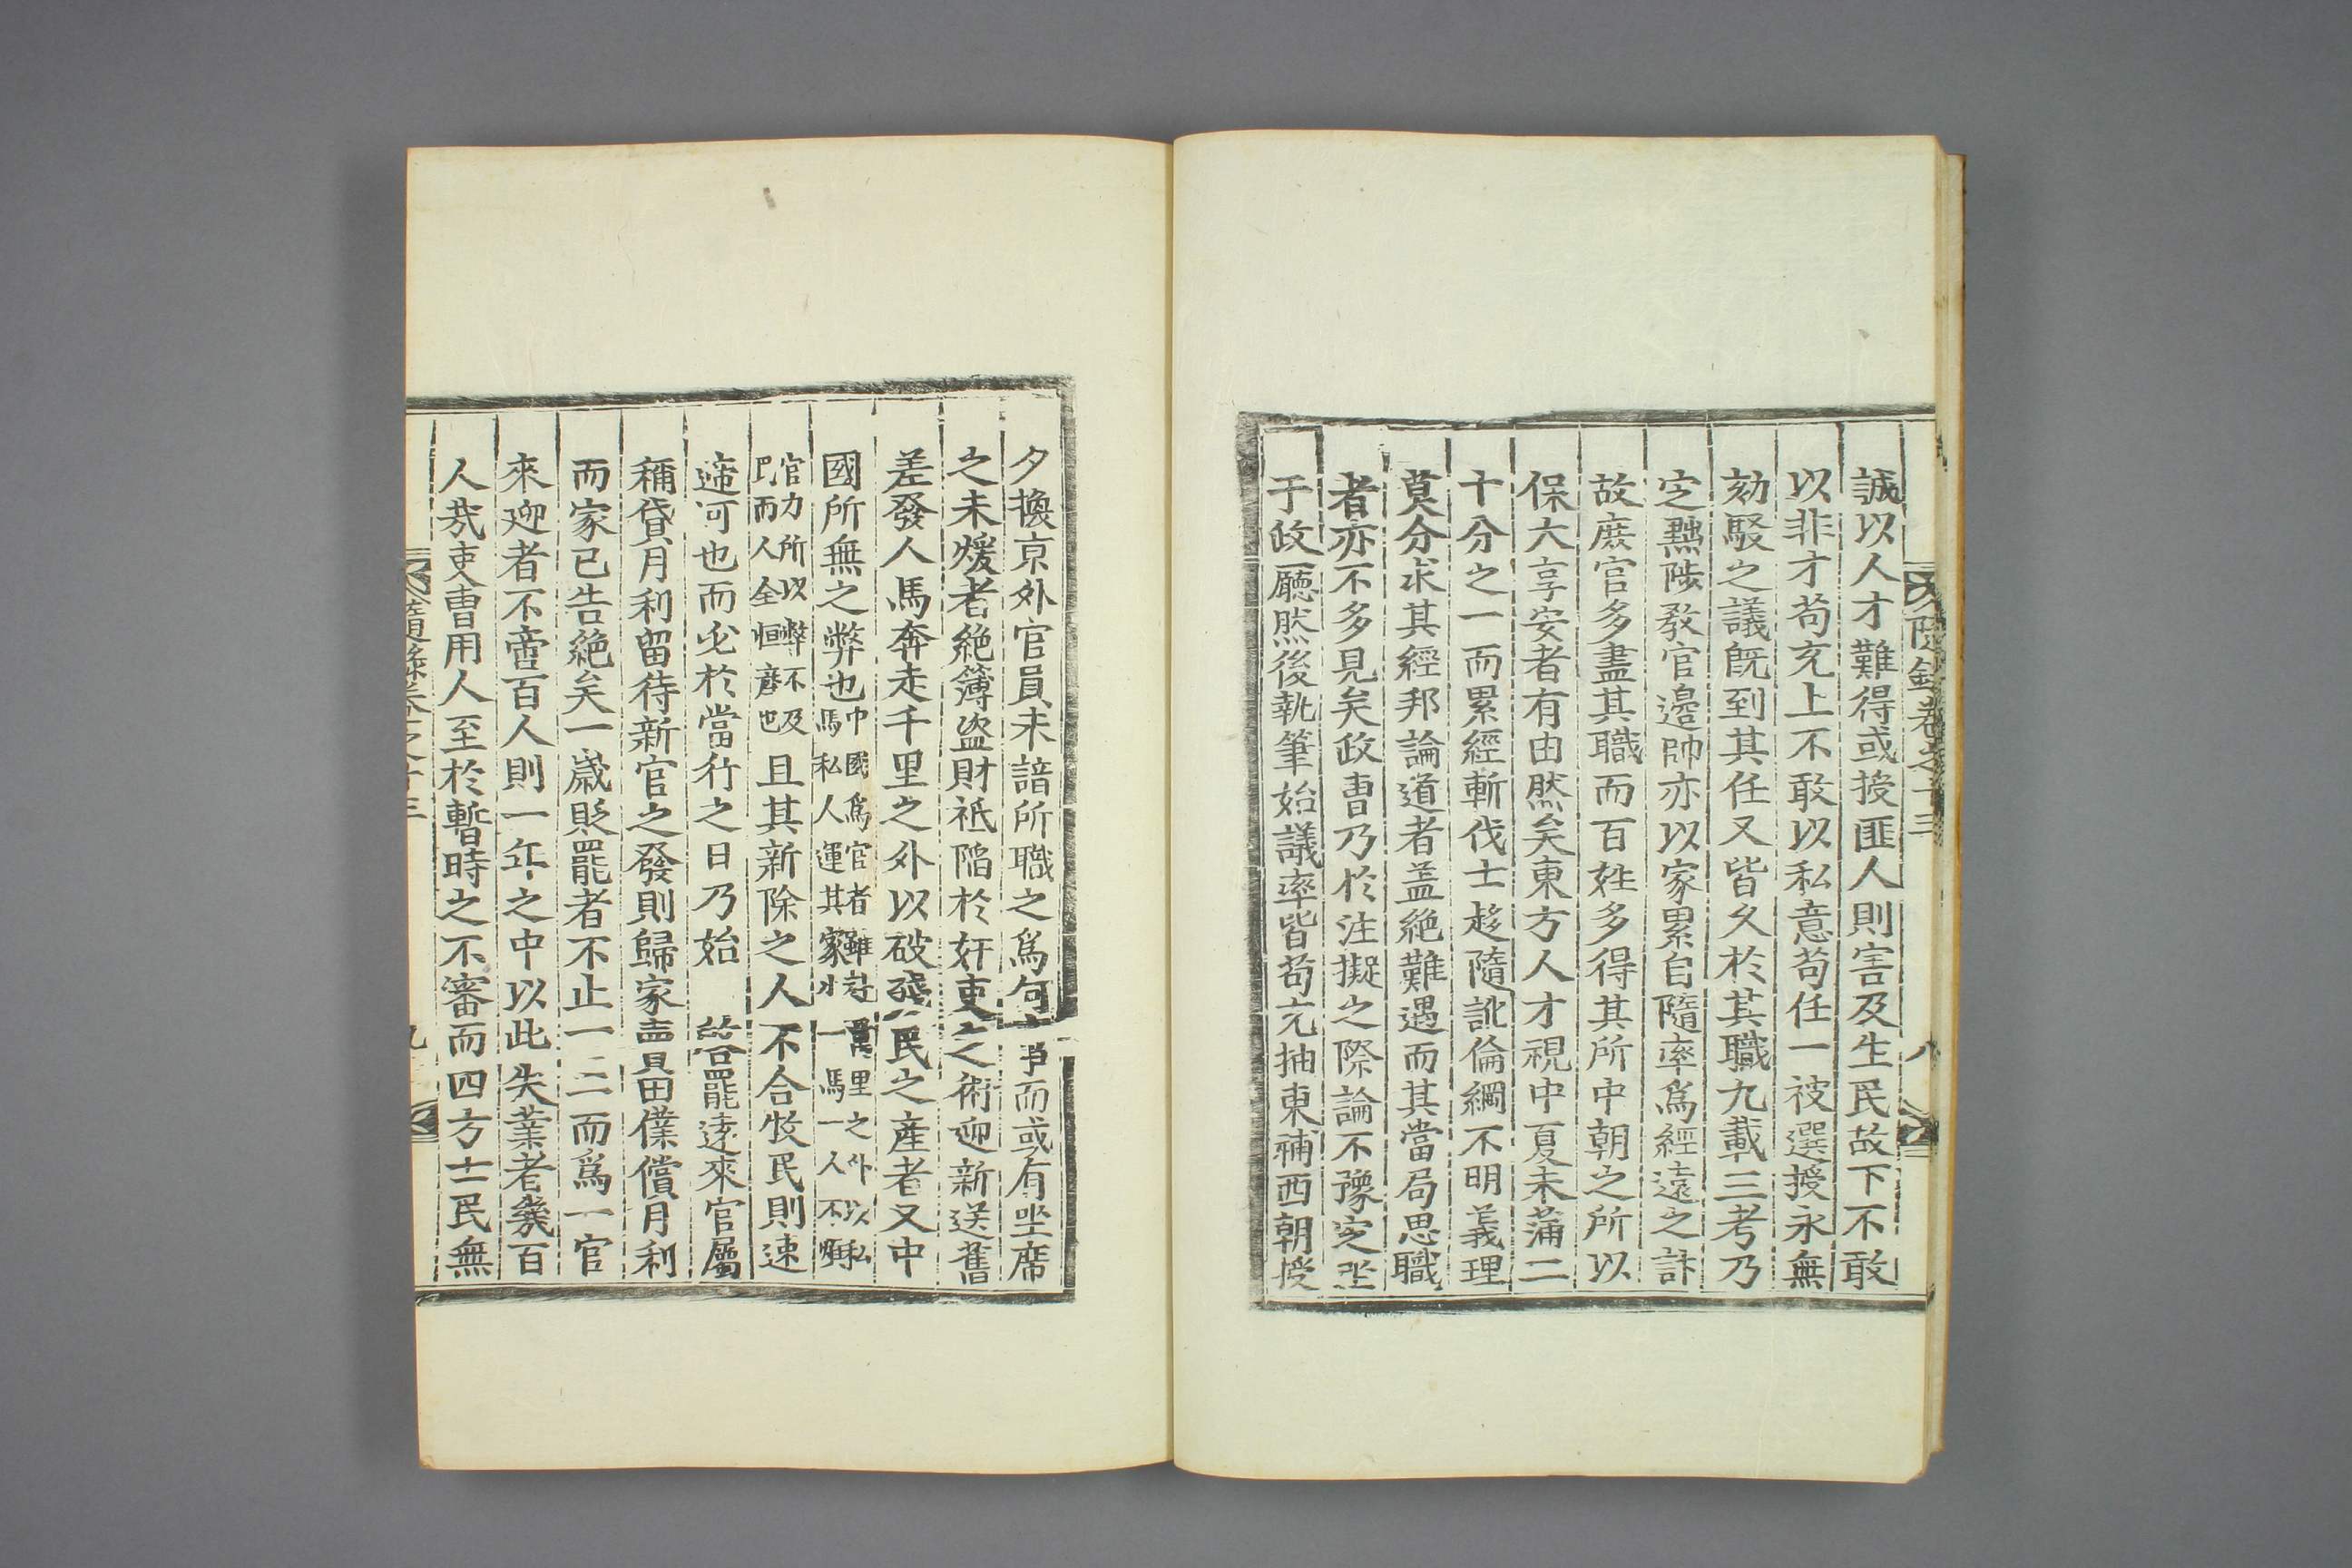 隨錄卷之十三
八
誠以人才難得或授匪人則害及生民故下不敢
以非才苟充上不敢以私意苟任一被選授永無
劾駁之議旣到其任又皆久於其職九載三考乃
定黜陟敎官邊帥亦以家累自隨率爲經遠之計
故庶官多盡其職而百姓多得其所中朝之所以
保大享安者有由然矣東方人才視中夏未蒲二
十分之一而累經斬伐士趍隨訛倫綱不明義理
莫分求其經邦論道者盖絶難遇而其當局思職
者亦不多見矣政曹乃於注擬之際論不豫定坐
于政廳然後執筆始議率皆苟充抽東補西朝授
夕換京外官員未諳所職之爲何事而或有坐席
之未煖者絶簿盜財祗陷於奸吏之術迎新送舊
差發人馬奔走千里之外以破殘民之產者又中
國所無之弊也中國爲官者雖赴萬里之外以私
馬私人運其家小一馬一人不煩
官力所以弊不及
民而人全恒產也
且其新除之人不合牧民則速
遞可也而必於當行之日乃始 啓罷遠來官屬
稱貸月利留待新官之發則歸家賣具田僕償月利
而家已告絶矣一歲貶罷者不止一二而爲一官
來迎者不啻百人則一年之中以此失業者幾百
人哉吏曹用人至於暫時之不審而四方士民無
隨錄卷之十三
九